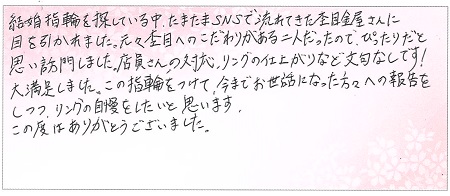 結婚指輪を探している中、たまたまSNSで流れてきた杢目金屋さんに
目を引かれました。元々杢目へのこだわりがある二人だったので、ぴったりだと
思い訪問しました。店員さんの対応、リングの仕上がりなど文句なしです!
大満足しました。この指輪をつけて、今までお世話になった方々への報告を
しつつ、リングの自慢をしたいと思います。
この度はありがとうございました。